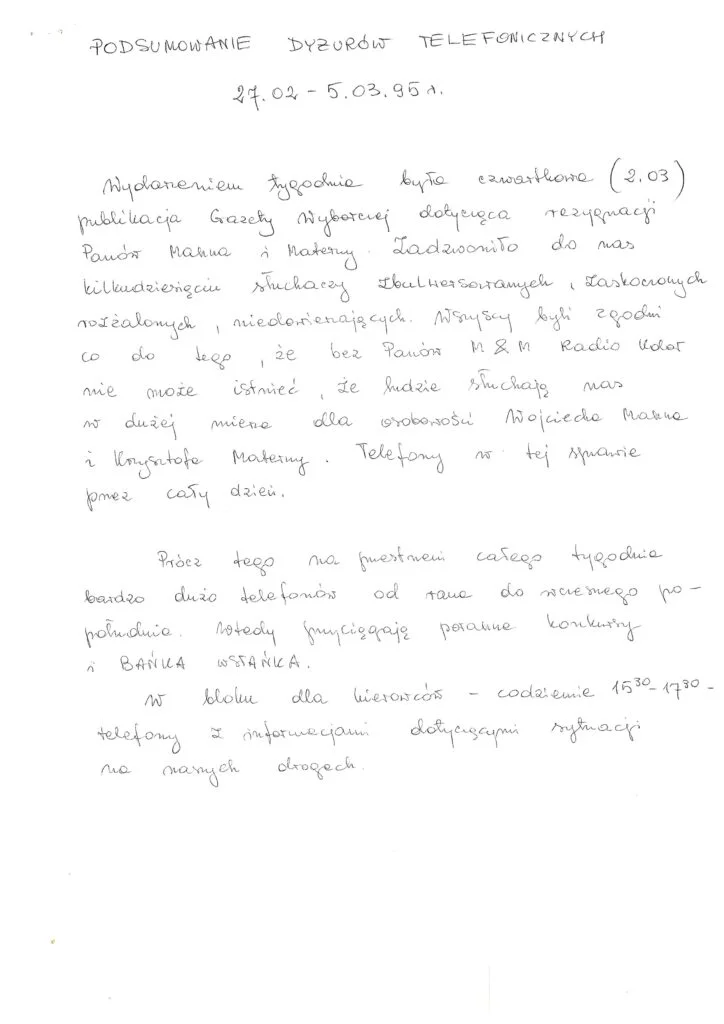 PODSUMOWANIE DYŻURÓW TELEFONICZNYCH
27.02 - 5.03.95 r.
Wydarzeniem tygodnia była czwartkowa (2.03)
publikacja Gazety Wyborczej dotycząca rezygnacji
Panów Manna i Materny. Zadzwoniło do nas
kilkudziesięciu słuchaczy zbulwersowanych, zaskoczonych
rozżalonych, niedowierzających. Wszyscy byli zgodni
co do tego, że bez Panów M & M Radio Kolor
nie może istnieć, że ludzie słuchają nas
w dużej mierze dla osobowości Wojciecha Manna
i Krzysztofa Materny. Telefony w tej sprawie
przez cały dzień.
Prócz tego na przestrzeni całego tygodnia
bardzo dużo telefonów od rana do wczesnego po-
południa. Wtedy przyciągają poranne konkursy
i BAŃKA WSTAŃKA.
W bloku dla kierowców - codziennie 15³⁰-17³⁰ -
telefony z informacjami dotyczącymi sytuacji
na naszych drogach.